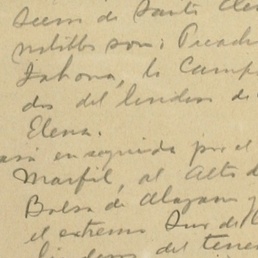 de Santa Ele
notables son: Picach
Sabona, la Camp
dos del lindero de
Elena.
asa enseguida por el
Marfil, al Alto d
Bolsa de Alazan y
el extremo Sur de l
del terre